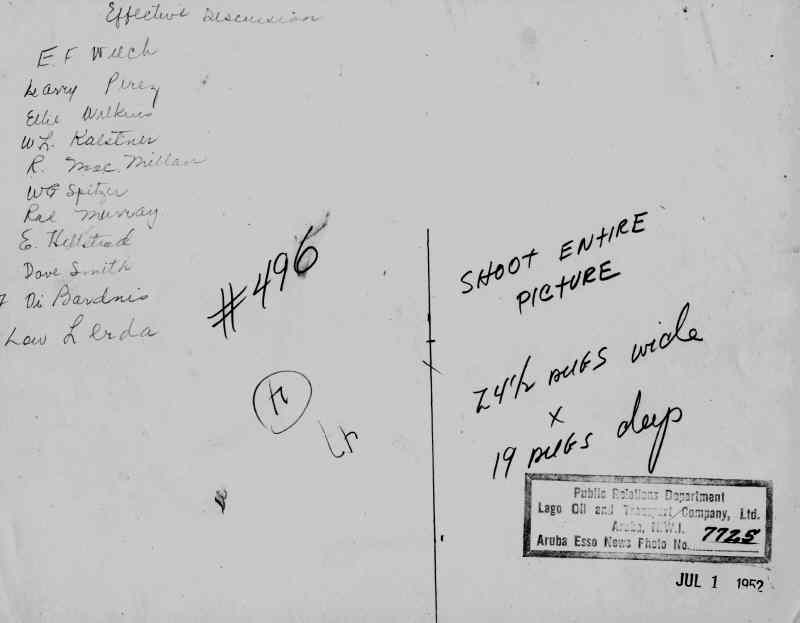 Effective Discussion
E. F. Welch
Larry Perez
Ellie Wilkins
W L. Kalstner
R. MacMillan
WG Spitzer
Rae Murray
E. Hellstrad
Dave Smith
Di Bardnis
Low Lerda
#496
4
SHOOT ENTIRE
PICTURE
24 1/2 wide
x
19 deep
Public Relations Department
Lago Oil and Transport Company, Ltd.
Aruba, N.W.I.
Aruba Esso News Photo No. 7725
JUL 1 1952